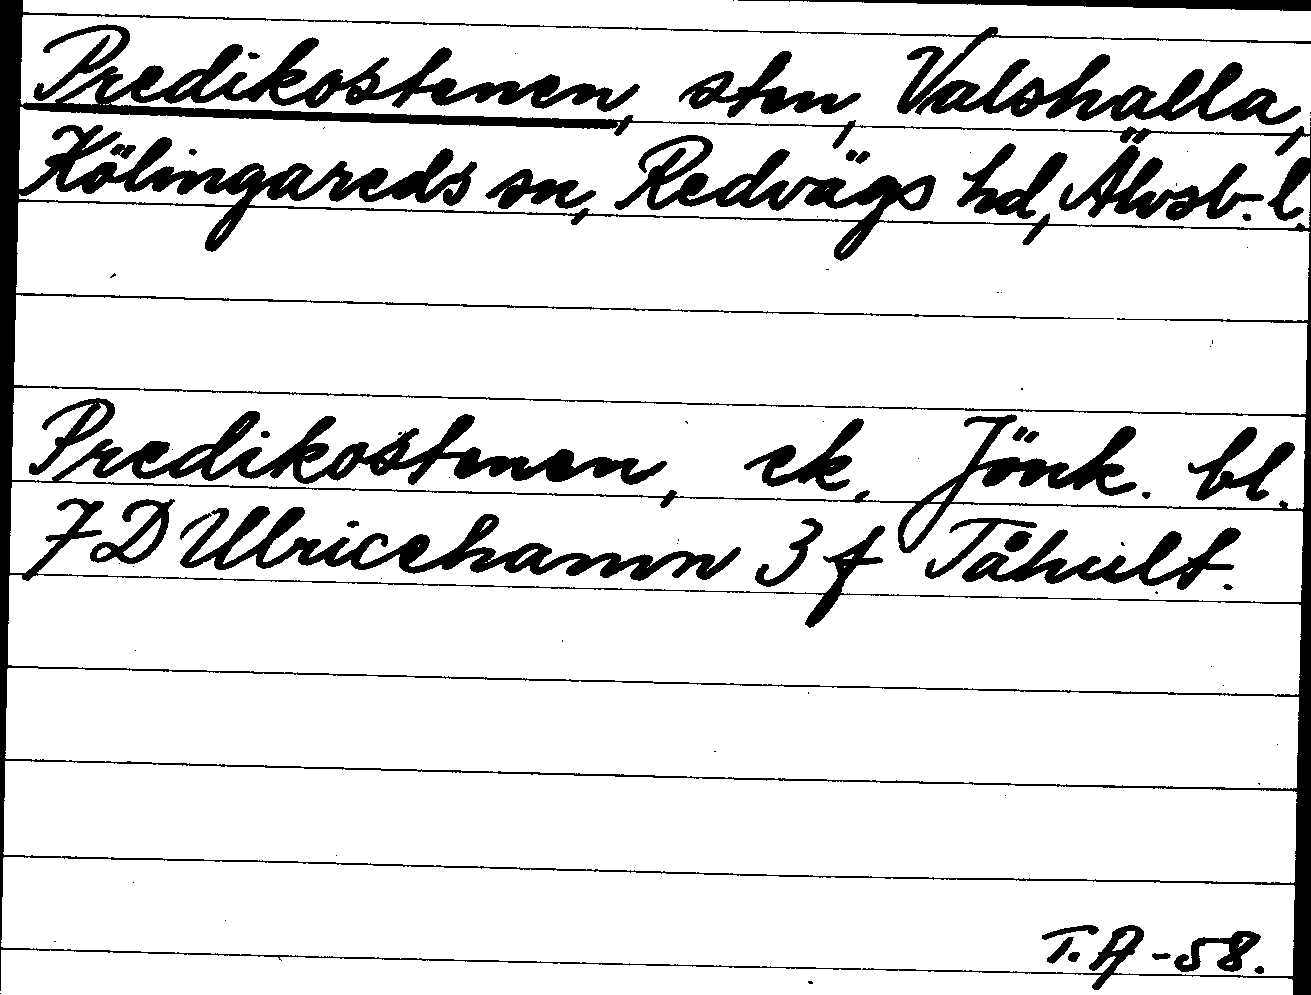 Predikostenen, sten, Valshalla,
Kölingareds sn, Redvägs hd, Älvsb. l.
Predikostenen, ek. Jönk. bl.
7 D Ulricehamn 3 f Tåhult.
T. A -58.